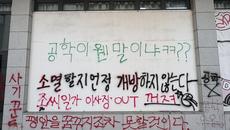 공학이 웬 말이냐ㅋㅋ??
소멸할지언정 개방하지 않는다
조씨일가 이사장 OUT 꺼져
사기꾼들
공학
X
평안을 꿈꾸지조차 못할 것이다.